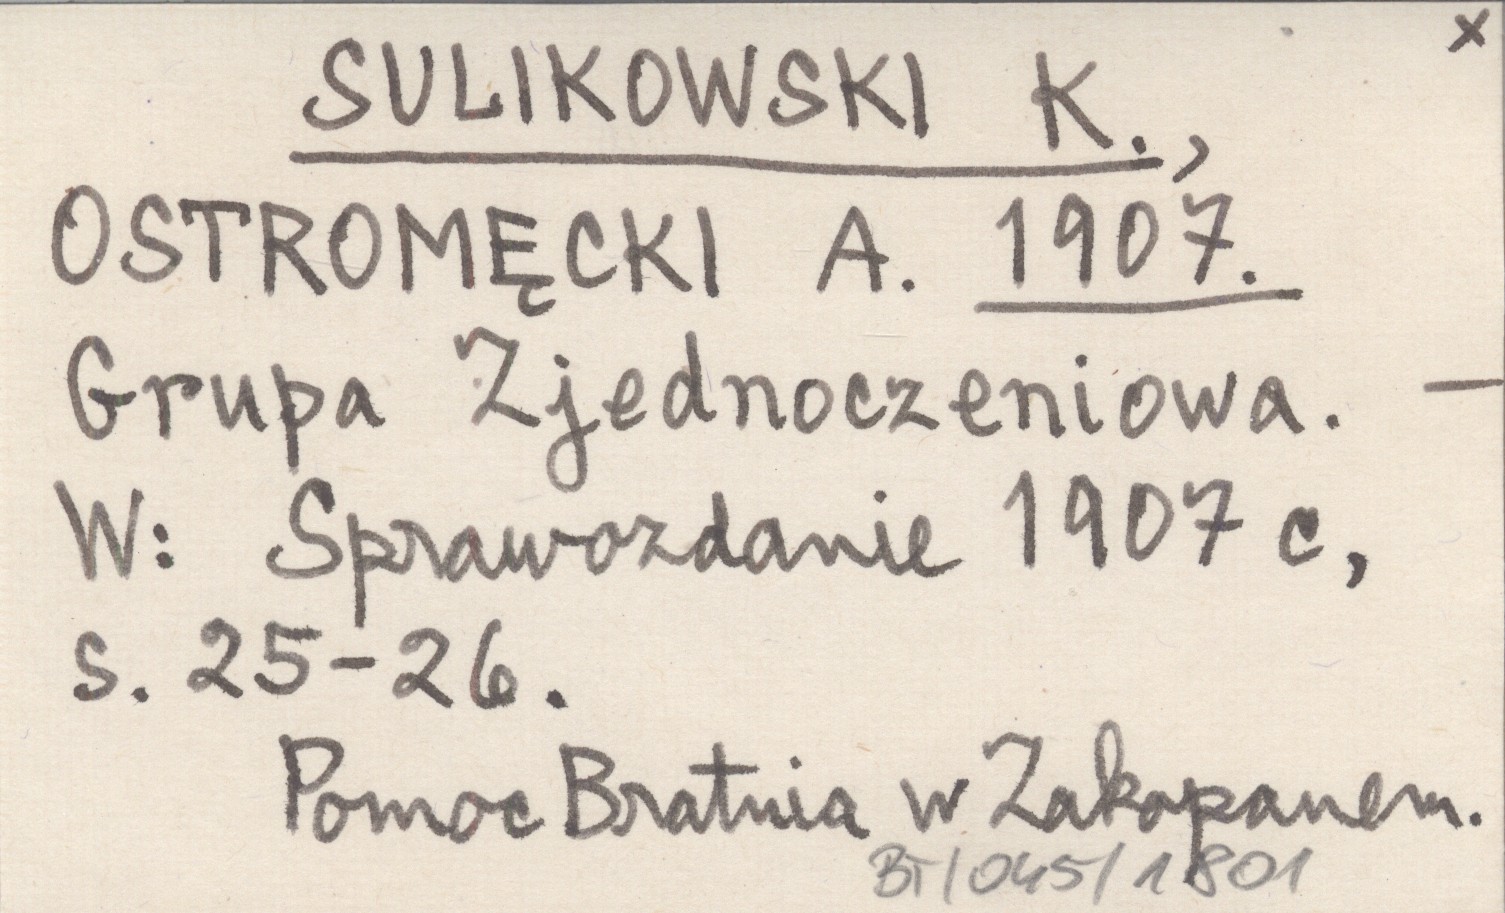 x
SULIKOWSKI K.,
OSTROMĘCKI A. 1907.
Grupa Zjednoczeniowa. —
W: Sprawozdanie 1907 c,
s. 25-26.
Pomoc Bratnia w Zakopanem.
BT/045/1801